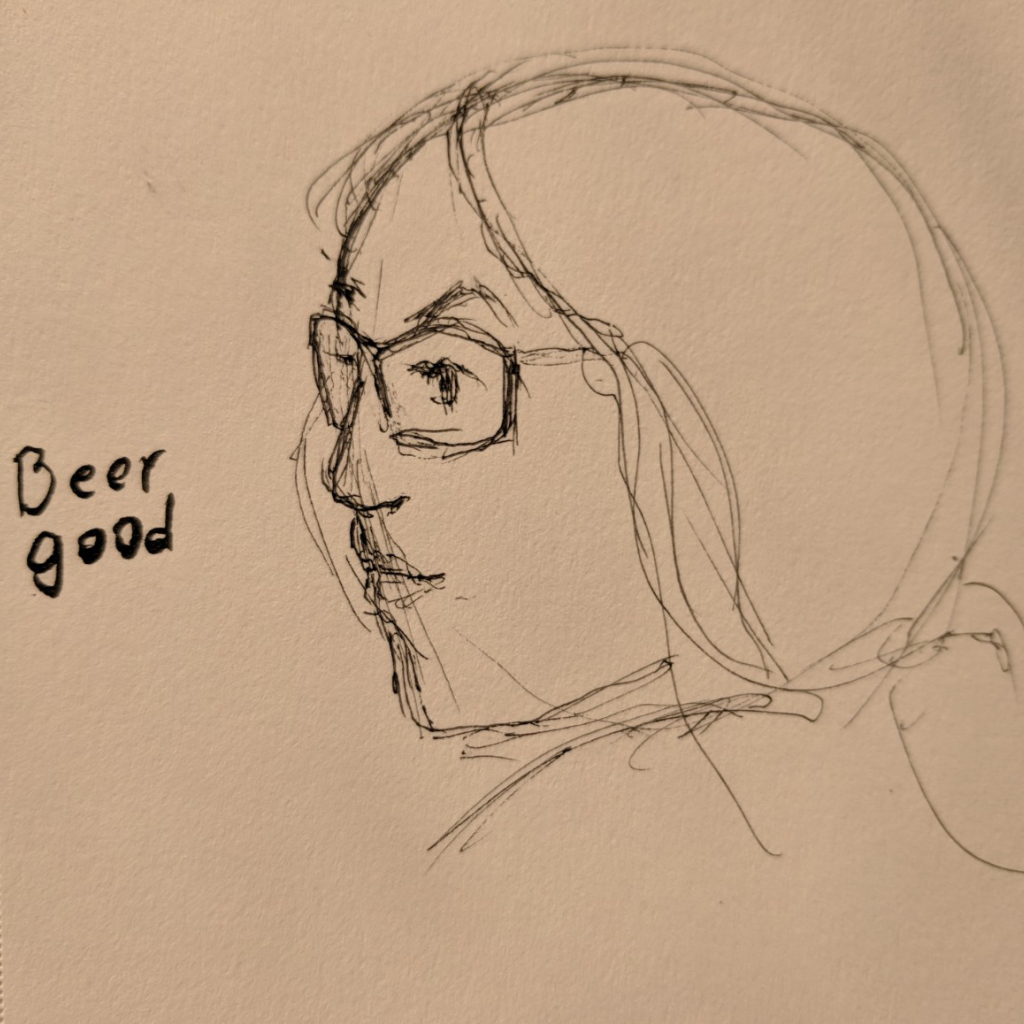 Beer
good